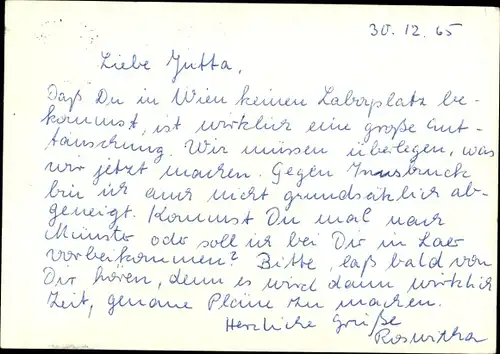 30. 12. 65
Liebe Jutta,
Daß Du in Wien keinen Laborplatz be-
kommst, ist wirklich eine große Ent-
täuschung. Wir müssen überlegen, was
wir jetzt machen. Gegen Innsbruck
bin ich auch nicht grundsätzlich ab-
geneigt. Kommst Du mal nach
Münster oder soll ich bei Dir in Laer
vorbeikommen? Bitte, laß bald von
Dir hören, denn es wird dann wirklich
Zeit, genaue Pläne zu machen.
Herzliche Grüße
Roswitha